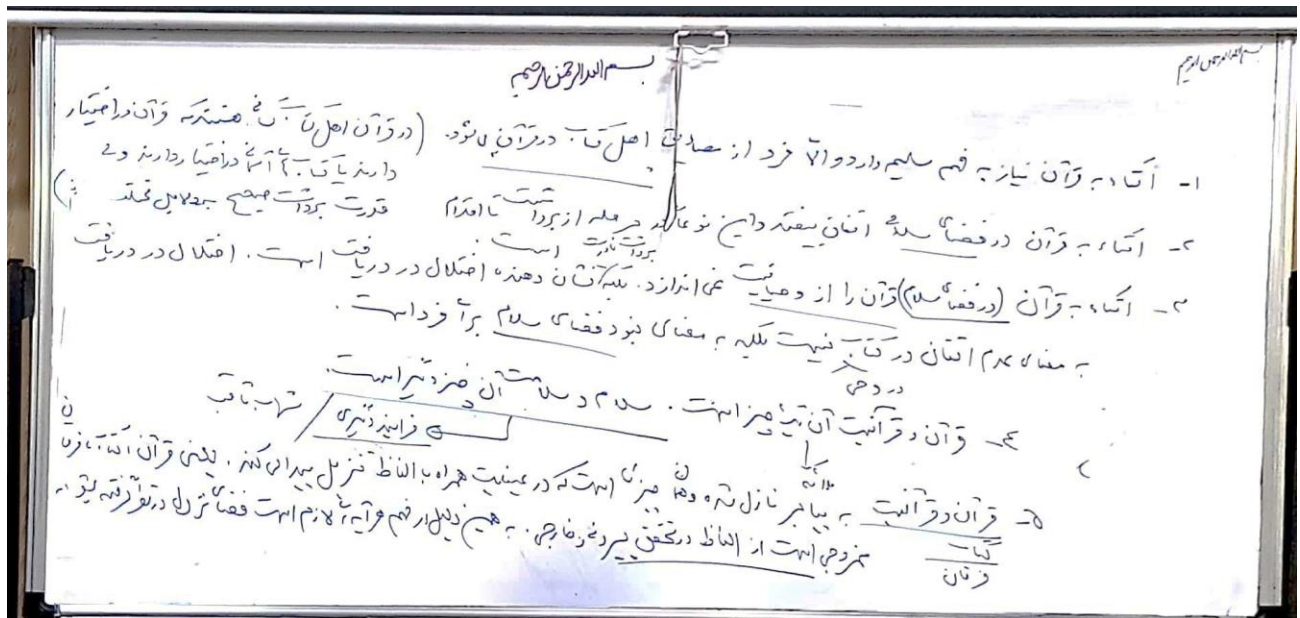 بسم الله الرحمن الرحیم
بسم الله الرحمن الرحیم
۱- اتکاء به قرآن نیاز به فهم سلیم دارد والّا فرد از مصادیق اهل کتاب در قرآن می‌شود. (در قرآن اهل کتاب کسانی هستند که قرآن در اختیار
دارند یا کتابهای آسمانی در اختیار دارند ولی
قدرت برداشت صحیح به دلایل مختلف
۲- اتکاء به قرآن در فضای سلامی اتفاق بیفتد و این نوعاً در مرحله از برداشت تا اقدام
است
۳- اتکاء به قرآن (در فضای سلام) قرآن را از وحیانیت نمی‌اندازد. بلکه نشان دهنده اختلال در دریافت است. اختلال در دریافت
به معنای عدم اتقان در کتاب نیست بلکه به معنای نبود فضای سلام برای فرد است.
در وحی
۴- قرآن و قرآنیت آن یک چیز است. سلام و سلامت آن چیز دیگر است.
فرایند دیگری
شهاب ثاقب
۵- قرآن و قرآنیت به پیامبر نازل شده و همان چیزی است که در عینیت همراه با الفاظ تنزیل پیدا می‌کند. یعنی قرآن
کتاب
فرقان
ممزوجی است از الفاظ در تحقق بیرونی و خارجی. به همین دلیل در فهم هر آیه‌ای لازم است فضای نزول در نظر گرفته شود